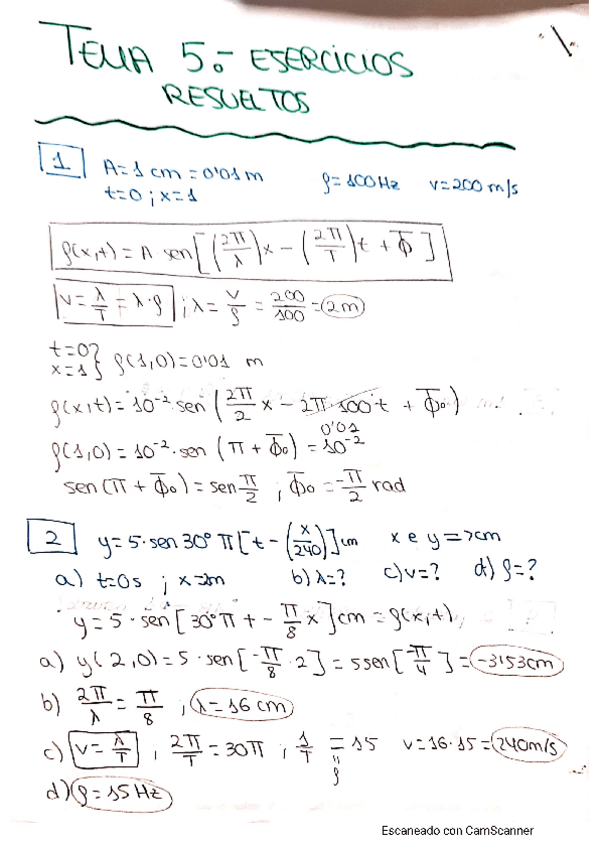 TEMA 5.- EJERCICIOS
RESUELTOS
1 A=1 cm = 0'01 m f=100Hz v=200 m/s
t=0 ; x=1
f(x,t) = A sen[(2π/λ)x - (2π/T)t + Φ]
v = λ/T = λ·f ; λ = v/f = 200/100 = 2m
t=0
x=1 } f(1,0)=0'01 m
f(x,t) = 10⁻² sen (2π/2 x - 2π·100t + Φ₀)
0'01
f(1,0) = 10⁻² · sen (π + Φ₀) = 10⁻²
sen(π + Φ₀) = sen π/2 ; Φ₀ = -π/2 rad
2 y=5·sen 30° π[t - (x/240)] cm x e y => cm
a) t=0s ; x=2m b) λ=? c) v=? d) f=?
y = 5 · sen[30°π t - π/8 x] cm = f(x,t)
a) y(2,0) = 5 · sen[-π/8 · 2] = 5 sen[-π/4] = -3'53cm
b) 2π/λ = π/8 , λ = 16 cm
c) v = λ/T , 2π/T = 30π ; 1/T = 15 v=16·15 = 240m/s
=
f
d) f=15 Hz
Escaneado con CamScanner